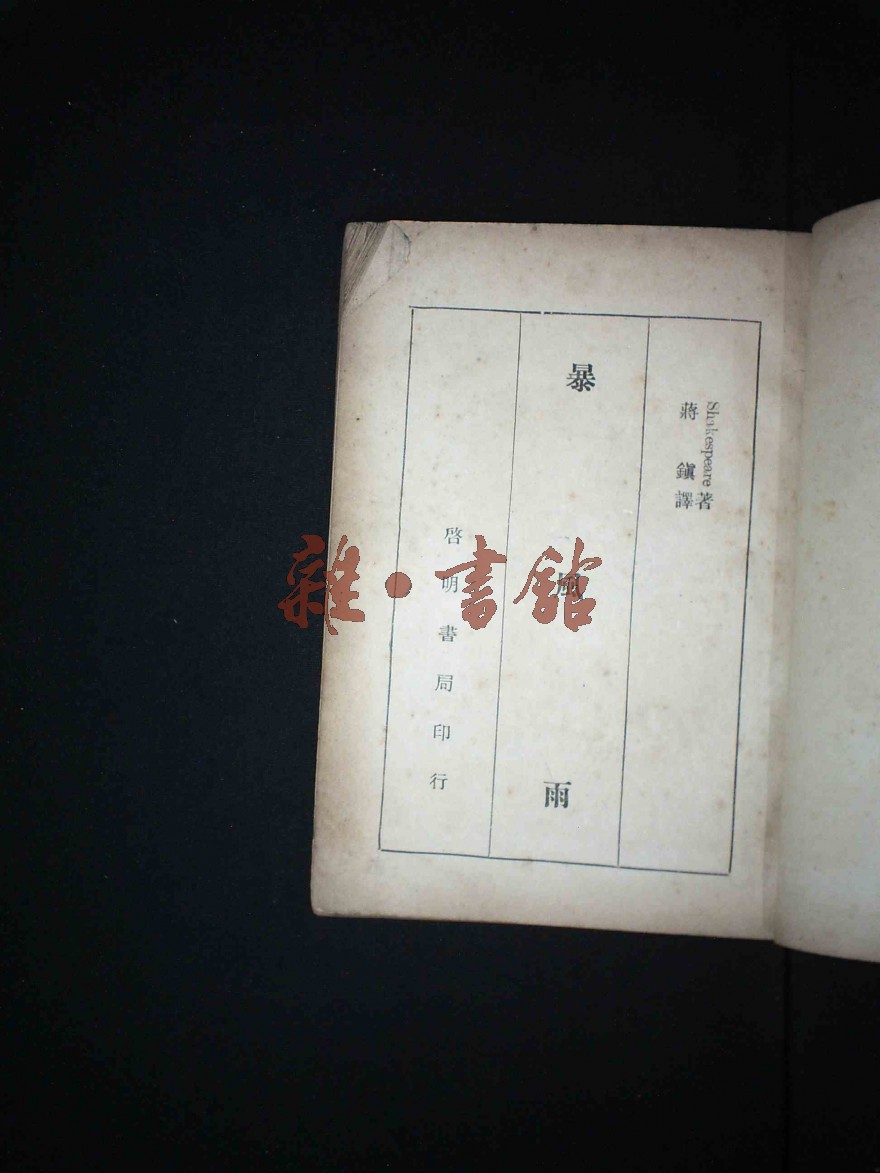 Shakespeare著
蔣鎭譯
暴風雨
啓明書局印行
雜·書館